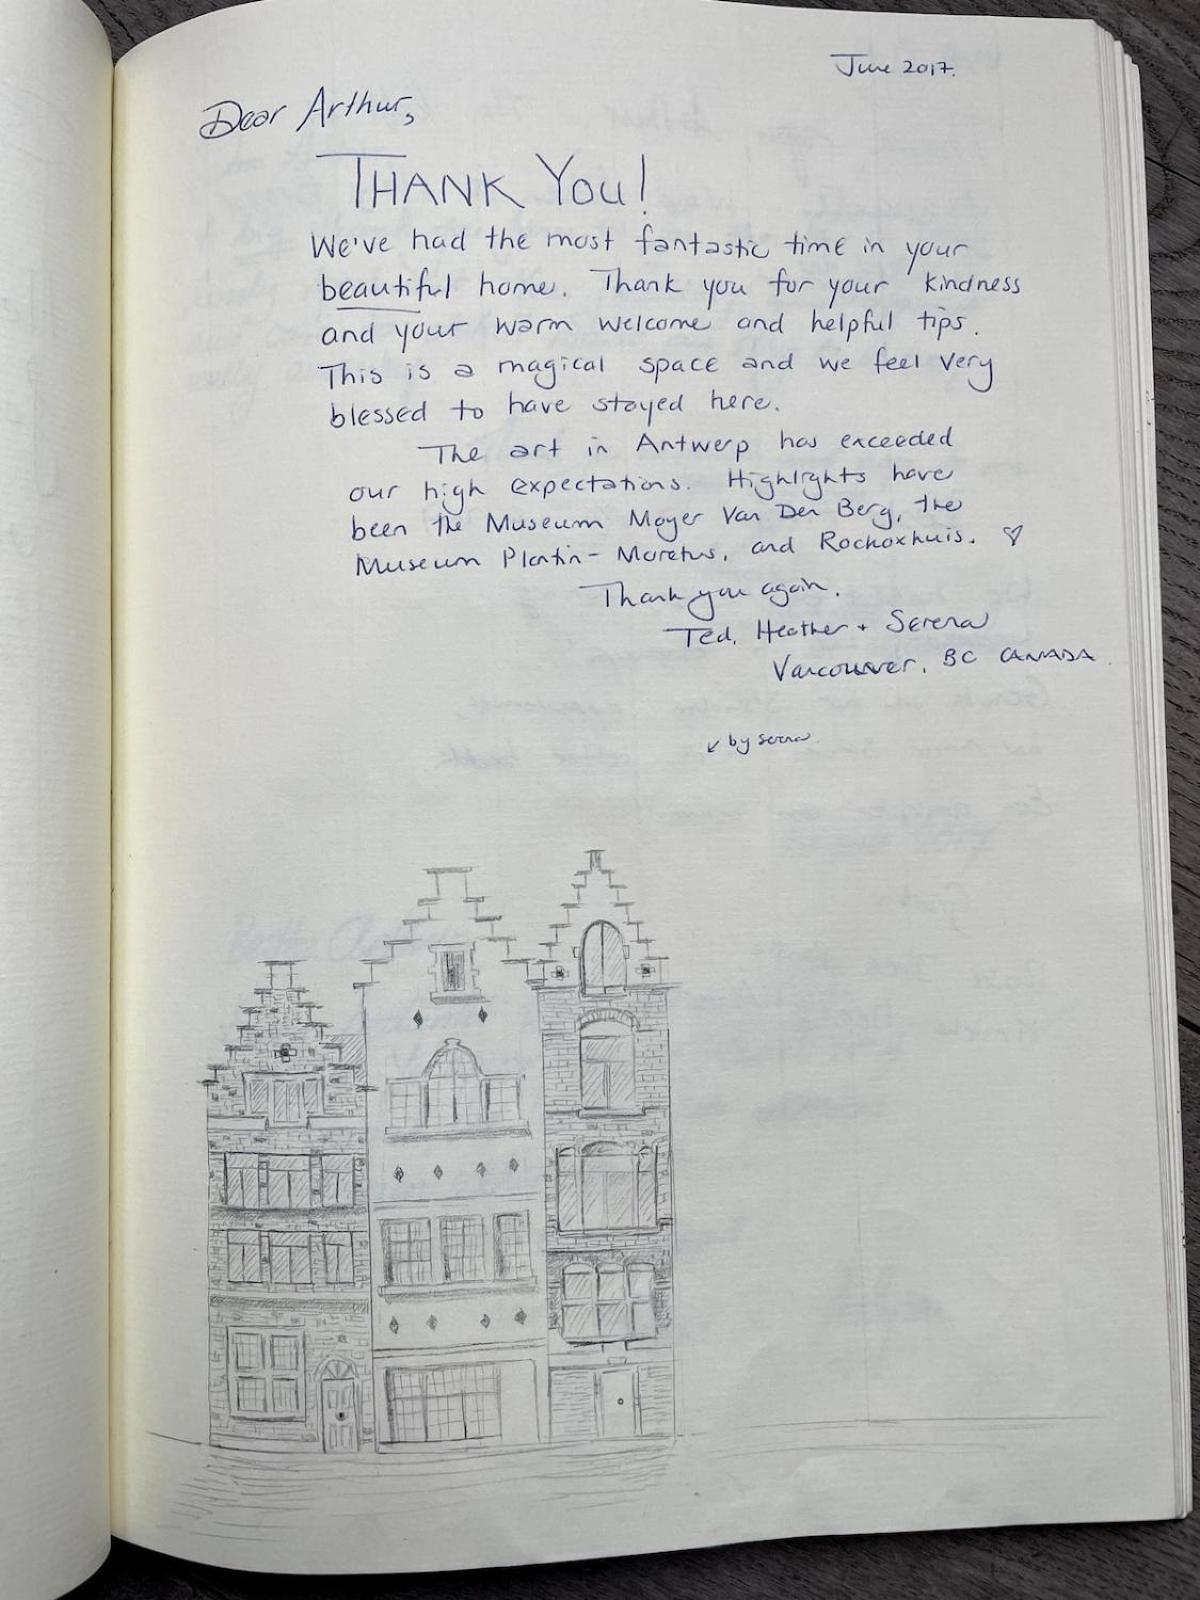 June 2017.
Dear Arthur,
THANK YOU!
We've had the most fantastic time in your
beautiful home. Thank you for your kindness
and your warm welcome and helpful tips.
This is a magical space and we feel very
blessed to have stayed here.
The art in Antwerp has exceeded
our high expectations. Highlights have
been the Museum Mayer Van Den Berg, the
Museum Plantin-Moretus, and Rockoxhuis. ♡
Thank you again.
Ted, Heather + Serena
Vancouver, BC CANADA
↙ by Serena